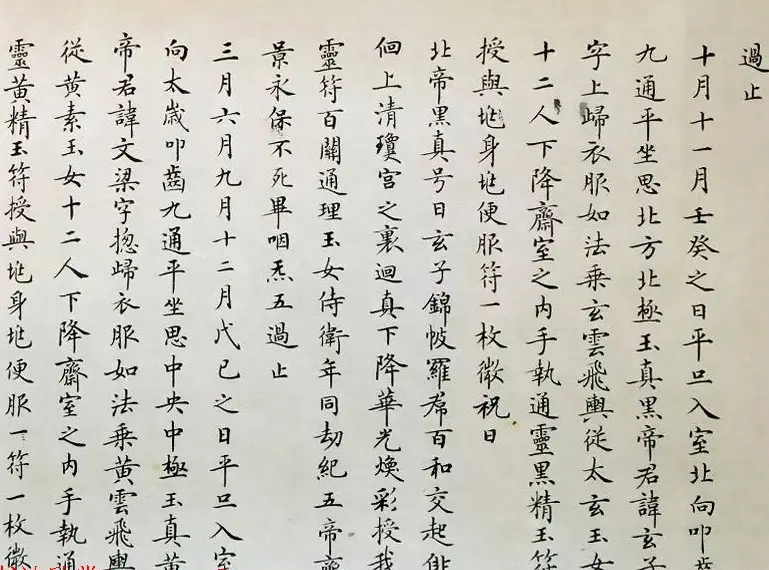 過止
十月十一月壬癸之日平旦入室北向叩齒
九通平坐思北方北極玉真黑帝君諱玄子
字上歸衣服如法乘玄雲飛輿從太玄玉女
十二人下降齋室之內手執通靈黑精玉符
授與垗身垗便服符一枚微祝曰
北帝黑真号曰玄子錦帔羅裙百和交起俳
佪上清瓊宮之裏迴真下降華光煥彩授我
靈符百關通理玉女侍衛年同劫紀五帝齊
景永保不死畢咽炁五過止
三月六月九月十二月戊己之日平旦入室
向太歲叩齒九通平坐思中央中極玉真黃
帝君諱文梁字揔歸衣服如法乘黃雲飛輿
從黃素玉女十二人下降齋室之內手執通
靈黃精玉符授與垗身垗便服一符一枚微